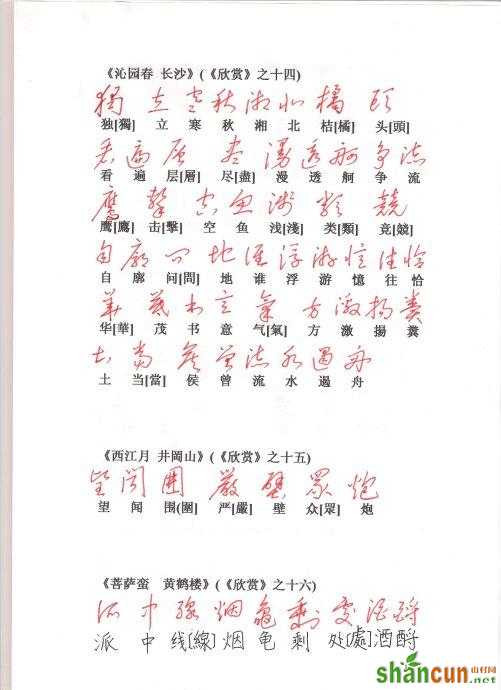 《沁园春 长沙》(《欣赏》之十四)
獨 立 寒 秋 湘 北 橘 頭
独[獨] 立 寒 秋 湘 北 枯[橘] 头[頭]
看 遍 層 盡 漫 透 舸 争 流
看 遍 层[層] 尽[盡] 漫 透 舸 争 流
鷹 擊 空 鱼 淺 類 競
鹰[鷹] 击[擊] 空 鱼 浅[淺] 类[類] 竞[競]
自 廓 問 地 谁 浮 游 憶 往 恰
自 廓 问[問] 地 谁 浮 游 憶 往 恰
華 茂 书 意 氣 方 激 揚 糞
华[華] 茂 书 意 气[氣] 方 激 揚 糞
土 當 侯 曾 流 水 遏 舟
土 当[當] 侯 曾 流 水 遏 舟
《西江月 井岡山》(《欣赏》之十五)
望 闻 圍 嚴 壁 眾 炮
望 闻 围(圍] 严[嚴] 壁 众[眾] 炮
《菩萨蛮 黄鹤楼》(《欣赏》之十六)
派 中 線 烟 龟 剩 處 酒 酹
派 中 线[線] 烟 龟 剩 处[處] 酒 酹
shancun 山村网
.net